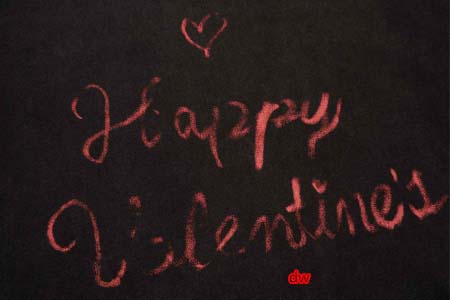 Happy
Valentine's
dw